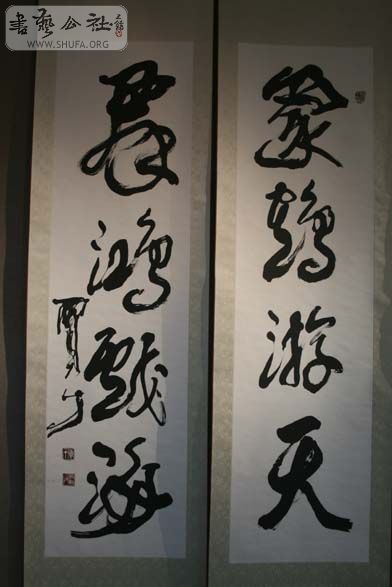 書藝公社
WWW.SHUFA.ORG
鵠游天
羣鴻戲海